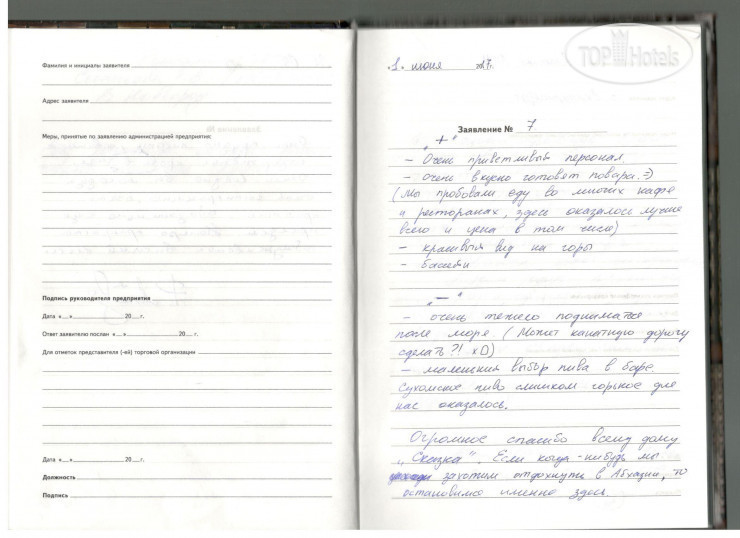 Фамилия и инициалы заявителя
Адрес заявителя
Меры, принятые по заявлению администрацией предприятия:
Подпись руководителя предприятия
Дата «__» 20__ г.
Ответ заявителю послан «__» 20__ г.
Для отметок представителя (-ей) торговой организации
Дата «__» 20__ г.
Должность
Подпись
TOP Hotels
1. июня 2017 г.
Заявление № 7
"+"
- Очень приветливый персонал.
- очень вкусно готовят повара. =)
(Мы пробовали еду во многих кафе
и ресторанах, здесь оказалось лучше
всего и цена в том числе)
- красивый вид на горы
- бассейн
"—"
- очень тяжело подниматься
после моря (Может канатную дорогу
сделать?! xD)
- маленький выбор пива в баре
Сухомское пиво слишком горькое для
нас оказалось.
Огромное спасибо всему дому
„Сказка". Если когда-нибудь мы
захотим отдохнуть в Абхазии, то
остановимся именно здесь.